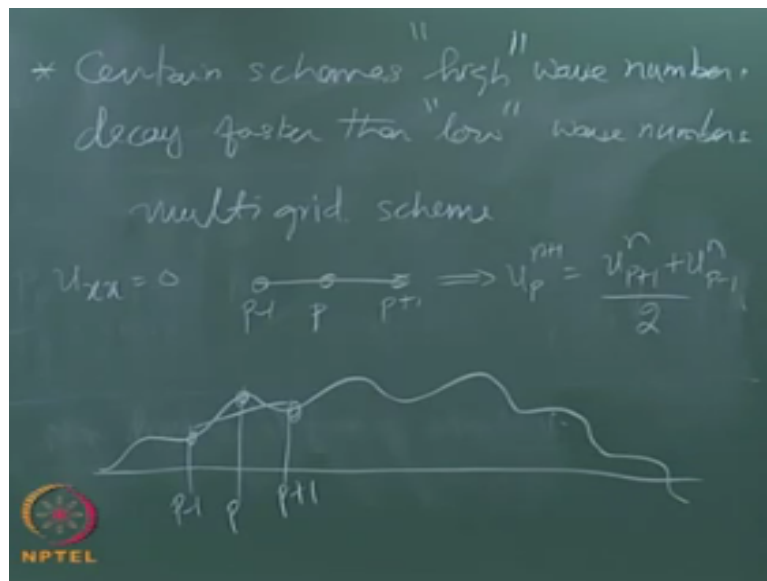 * Certain schemes "high" wave number.
decay faster than "low" wave numbers
multigrid scheme
u_xx = 0 p-1 p p+1 ⟹ u_p^{n+1} = (u_{p+1}^n + u_{p-1}^n)/2
p-1 p p+1
NPTEL